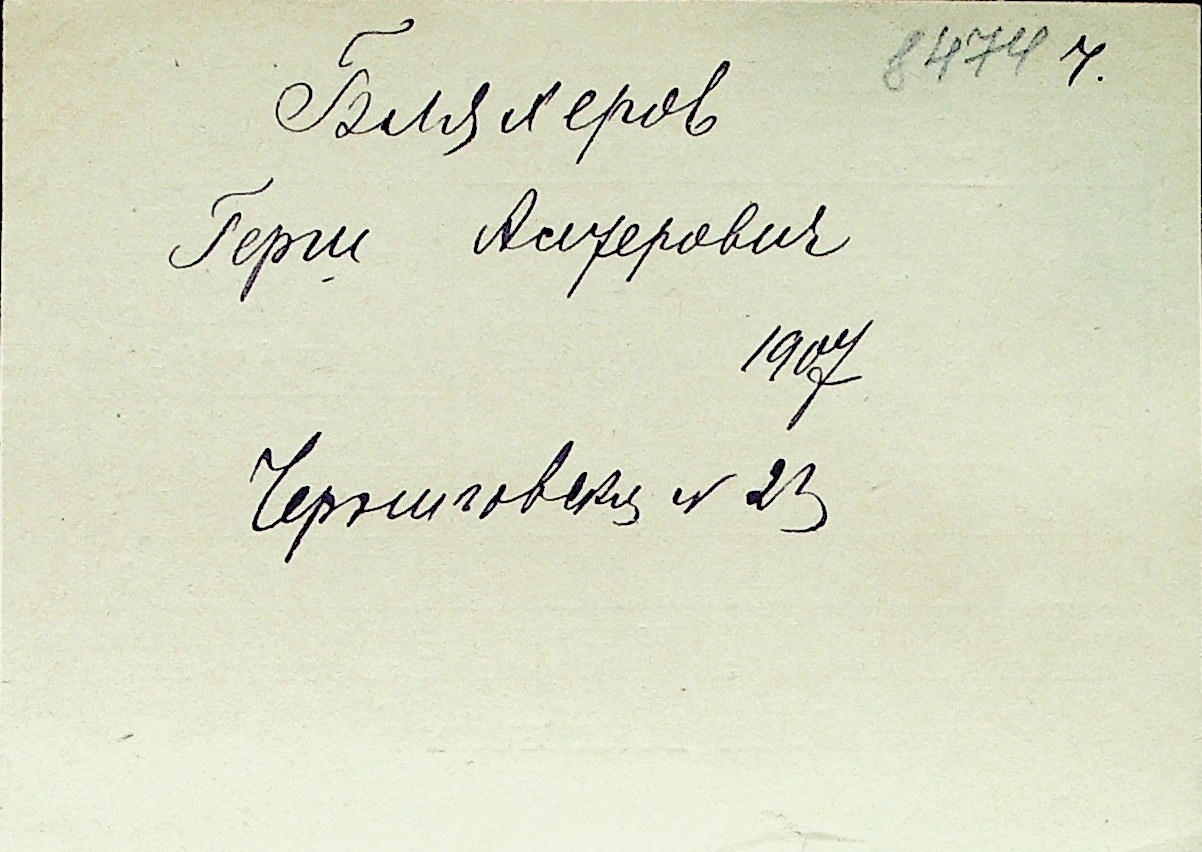 8474 ч.
Бляхеров
Герш Ангерович
1907
Черниговская N 23